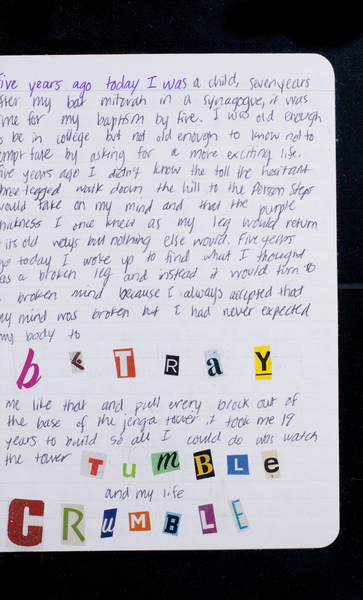 five years ago today I was a child, seven years
after my bat mitzvah in a synagogue, it was
time for my baptism by fire. I was old enough
to be in college but not old enough to know not to
tempt fate by asking for a more exciting life.
five years ago I didn't know the toll the hesitant
three legged walk down the hill to the Person Steps
would take on my mind and that the purple
thickness I once knew as my leg would return
to its old ways but nothing else would. Five years
ago today I woke up to find what I thought
was a broken leg and instead it would turn to
a broken mind because I always accepted that
my mind was broken but I had never expected
my body to
bETRAY
me like that and pull every block out of
the base of the jenga tower it took me 19
years to build so all I could do was watch
the tower TumBLe
and my life
CRuMBLE